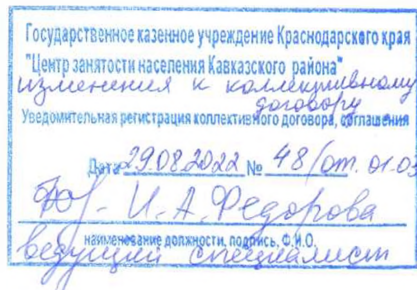 Государственное казенное учреждение Краснодарского края
"Центр занятости населения Кавказского района"
изменения к коллективному
договору
Уведомительная регистрация коллективного договора, соглашения
Дата 29.08.2022 № 48/от. 01.03
И.А. Федорова
наименование должности, подпись, Ф.И.О.
ведущий специалист